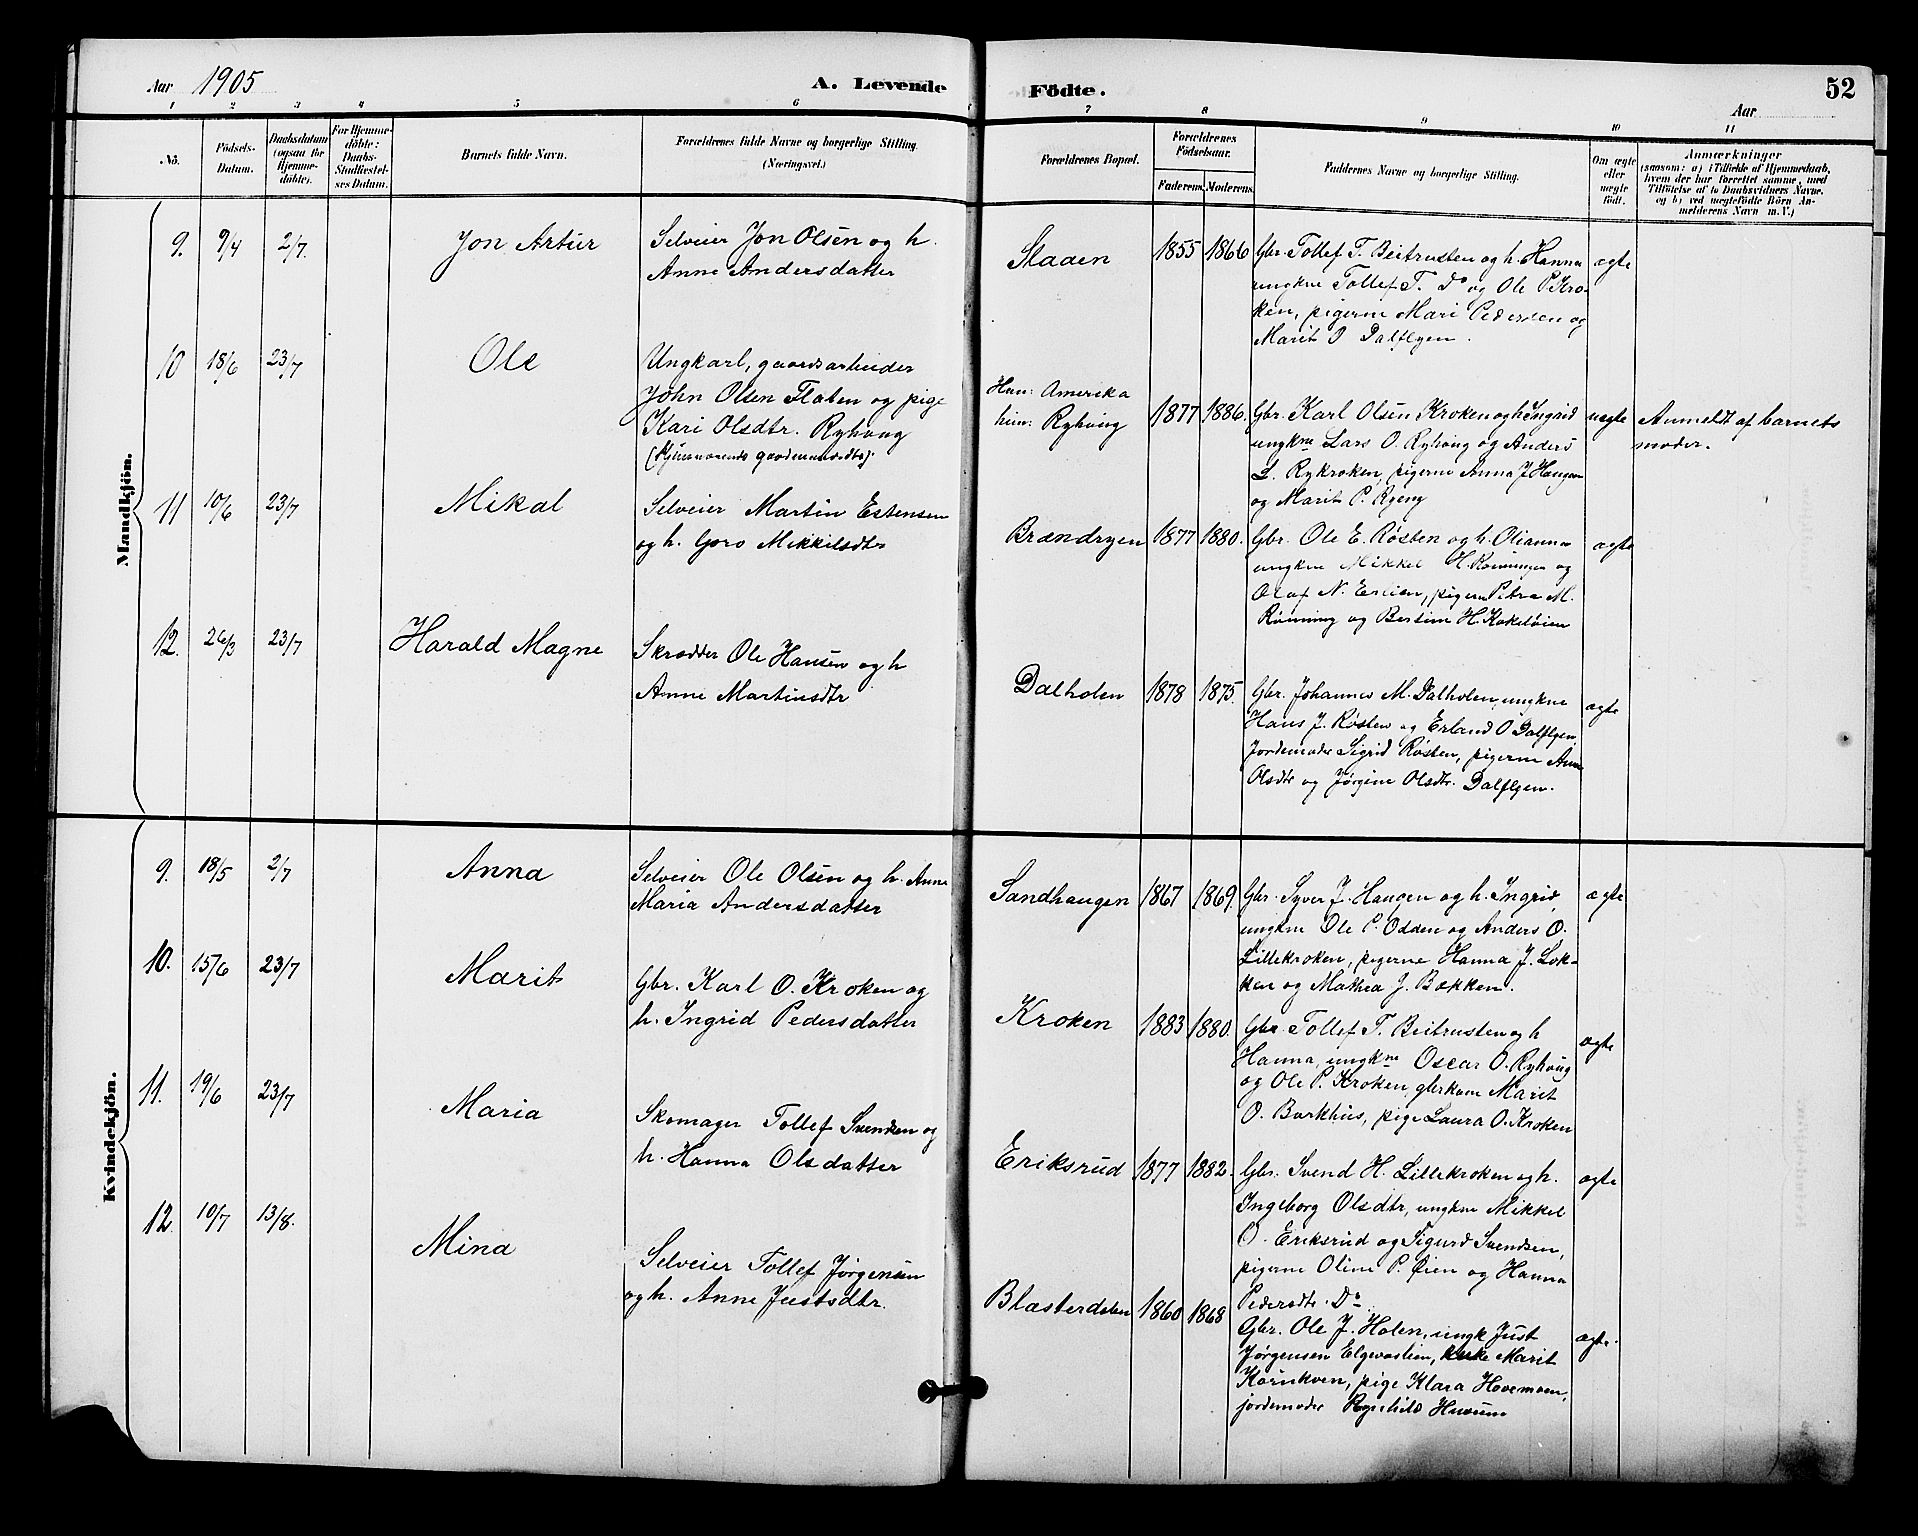 Aar 1905
A. Levende
Födte.
Aar
52
1 2 3 4 5 6 7 8 9 10 11
No.
Födsels-
Datum.
Daabsdatum
(ogsaa for
Hjemme-
döbte).
For Hjemme-
döbte:
Daabs-
Stadfæstel-
ses Datum.
Barnets fulde Navn.
Forældrenes fulde Navne og borgerlige Stilling.
(Næringsvei.)
Forældrenes Bopæl.
Forældrenes
Födselsaar.
Faderens. Moderens.
Faddernes Navne og borgerlige Stilling.
Om ægte
eller
uægte
födt.
Anmærkninger
(saasom: a) i Tilfælde af Hjemmedaab,
hvem der har forrettet samme, med
Tilföielse af to Daabsvidners Navne.
og b) ved uægtefödte Börn An-
melderens Navn m. V.)
Mandkjön.
9. 9/4 2/7. Jon Artur
Selveier Jon Olsen og h.
Anne Andersdatter
Slaaen 1855 1866
Gbr. Tollef T. Beitrusten og h. Hanna
ungkne Tollef T. Do og Ole P. Kro-
ken, pigerne Mari Pedersen og
Marit O Dalflyen.
ægte
10 18/6 23/7 Ole
Ungkarl, gaardsarbeider
John Olsen Flaten og pige
Kari Olsdtr. Ryhoug
(hjemmeværende gaardmandsdtr).
Han: Amerika
hun: Ryhoug
1877 1886.
Gbr. Karl Olsen Kroken og h. Ingrid
ungkne Lars O. Ryhoug og Anders
L. Rykroken, pigerne Anna J. Haugen
og Marit P. Ryeng
uægte
Anmeldt af barnets
moder.
11 10/6 23/7 Mikal
Selveier Martin Estensen
og h. Goro Mikkelsdtr
Brændryen 1877 1880.
Gbr. Ole E. Røsten og h. Olianna
ungkne Mikkel H. Rønningen og
Olaf N. Erlien, pigerne Petra M.
Rønning og Bertine H. Kakeløien
ægte
12. 26/3 23/7 Harald Magne
Skrædder Ole Hansen og h
Anne Martinsdtr
Dalholen 1878 1875.
Gbr. Johannes M. Dalholen, ungkne
Hans J. Røsten og Erland O Dalflyen,
Jordemoder Sigrid Røsten, pigerne Anne
Olsdtr og Jørgine Olsdtr. Dalflyen.
ægte
Kvindekjön.
9. 18/5 2/7 Anna
Selveier Ole Olsen og h. Anne
Maria Andersdatter
Sandhaugen 1867 1869.
Gbr. Syver J. Haugen og h. Ingrid,
ungkne Ole P. Odden og Anders O.
Lillekroken, pigerne Hanna J. Løk-
ken og Mathea J. Bækken.
ægte
10. 15/6 23/7 Marit
Gbr. Karl O. Kroken og
h. Ingrid Pedersdatter
Kroken 1883 1880.
Gbr Tollef T. Beitrusten og h
Hanna, ungkne Oscar O. Ryhoug
og Ole P. Kroken, gbrkone Marit
O. Barkhus, pige Laura O. Kroken
ægte
11. 19/6 23/7 Maria
Skomager Tollef Svendsen og
h. Hanna Olsdatter
Eriksrud 1877 1882.
Gbr. Svend H. Lillekroken og h.
Ingeborg Olsdtr, ungkne Mikkel
O. Eriksrud og Sigurd Svendsen,
pigerne Oline P. Øien og Hanna
Pedersdtr. Do
ægte
12. 10/7 13/8. Mina
Selveier Tollef Jørgensen
og h. Anne Justsdtr.
Blæsterdalen 1860 1868
Gbr. Ole J. Holen, ungk Just
Jørgensen Elgevaslien, Marit
Kornkven, pige Klara Hovemoen,
jordemoder Ragnhild Husum
ægte.